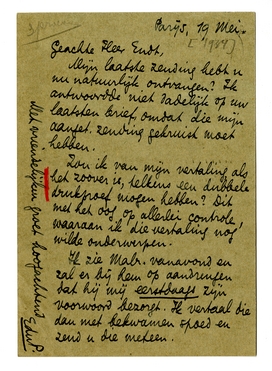 Parijs, 19 Mei.
[1934]
Geachte Heer Endt,
Mijn laatste zending hebt u
nu natuurlijk ontvangen? Ik
antwoordde niet dadelijk op uw
laatsten brief, omdat die mijn
aanget. zending gekruist moet
hebben.
Zou ik van mijn vertaling als
het zoover is, telkens een dubbele
drukproef mogen hebben? Dit
met het oog op allerlei controle
waaraan ik die vertaling nog
wilde onderwerpen.
Ik zie Malr. vanavond en
zal er bij hem op aandringen
dat hij mij eerstdaags zijn
voorwoord bezorgt. Ik vertaal die
dan met bekwamen spoed en
zend u die meteen.
Met vriendelijken groet hoogachtend
EduP.